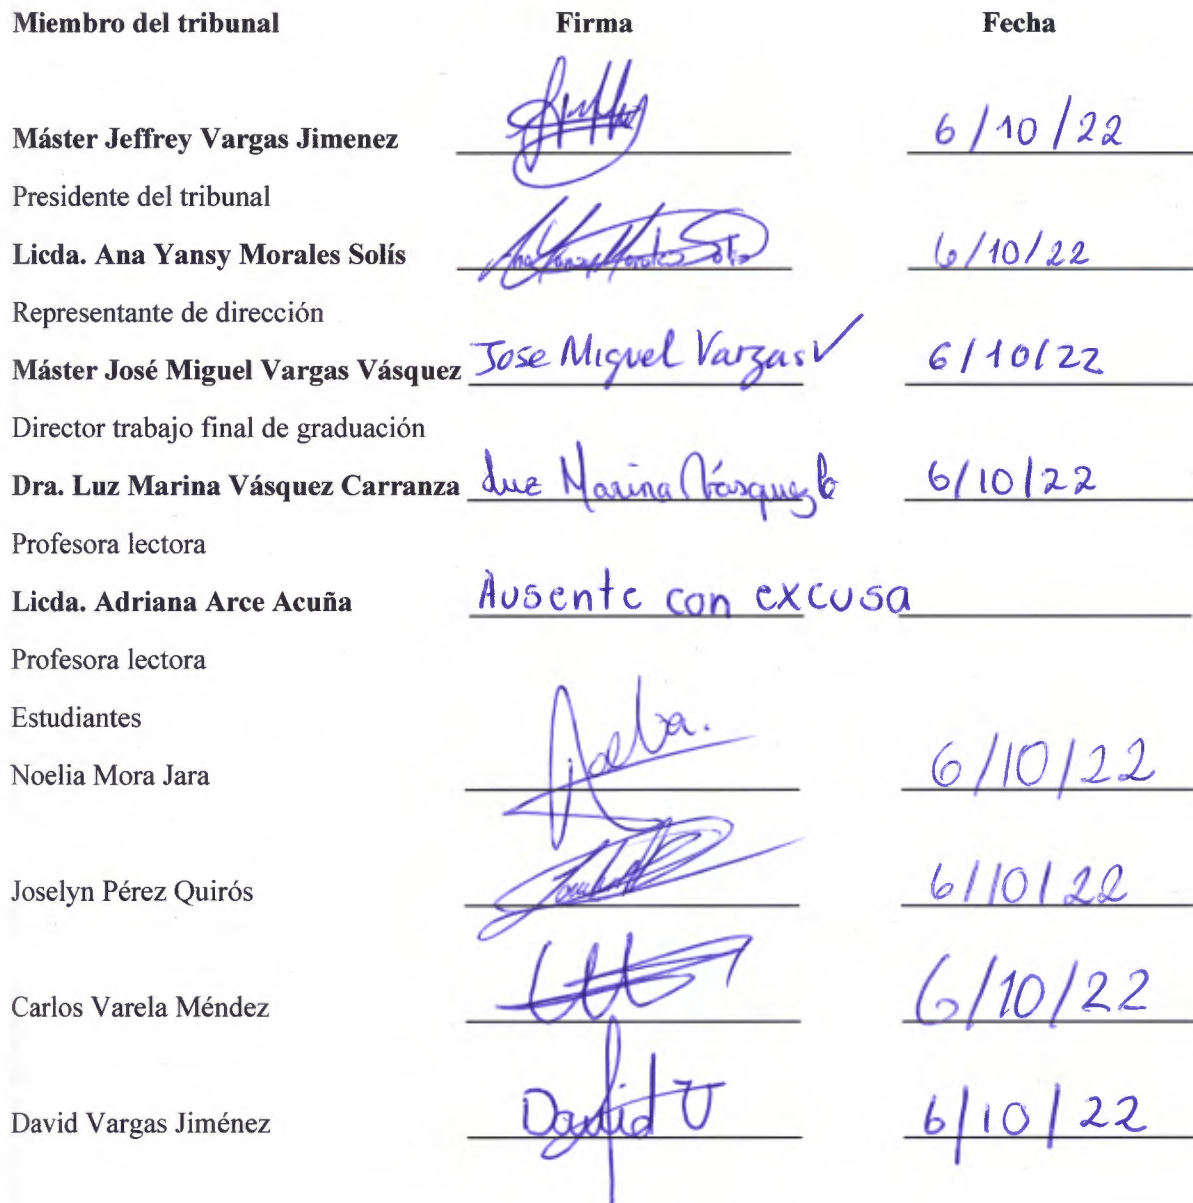 Miembro del tribunal Firma Fecha
Máster Jeffrey Vargas Jimenez 6/10/22
Presidente del tribunal
Licda. Ana Yansy Morales Solís Ana Yansy Morales Solís 6/10/22
Representante de dirección
Máster José Miguel Vargas Vásquez Jose Miguel Vargas V 6/10/22
Director trabajo final de graduación
Dra. Luz Marina Vásquez Carranza Luz Marina Vásquez C 6/10/22
Profesora lectora
Licda. Adriana Arce Acuña Ausente con excusa
Profesora lectora
Estudiantes
Noelia Mora Jara 6/10/22
Joselyn Pérez Quirós 6/10/22
Carlos Varela Méndez 6/10/22
David Vargas Jiménez David V 6/10/22